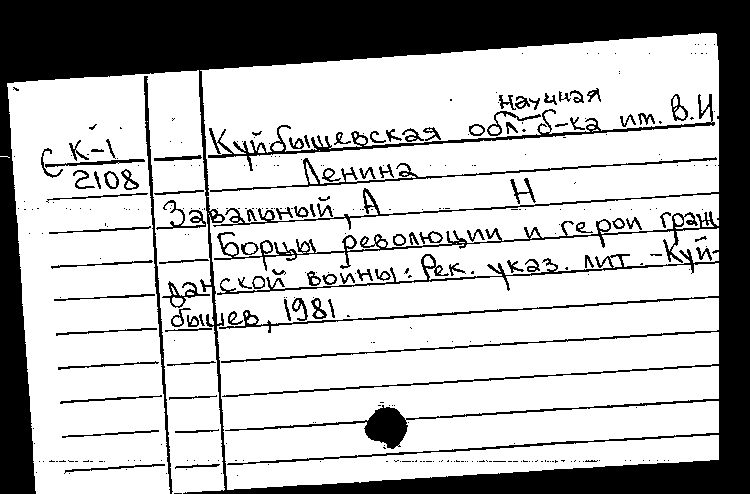 научная
С К-1 Куйбышевская обл. б-ка им. В.И.
2108 Ленина
Завальный, А Н
Борцы революции и герои граж-
данской войны: Рек. указ. лит. -Куй-
бышев, 1981.